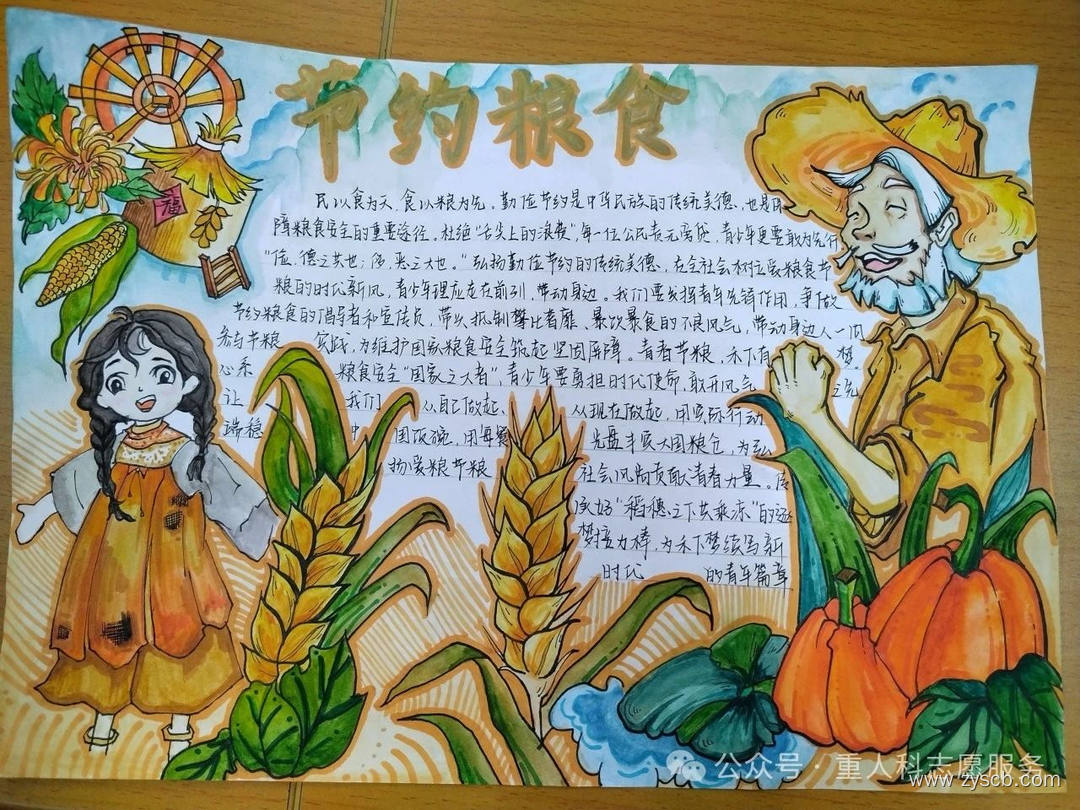 节约粮食
福
民以食为天,食以粮为先。勤俭节约是中华民族的传统美德、也是保
障粮食安全的重要途径。杜绝“舌尖上的浪费”,每一位公民责无旁贷,青少年更要敢为先行
“俭,德之共也;侈,恶之大也。”弘扬勤俭节约的传统美德,在全社会树立爱粮食节
粮的时代新风,青少年理应走在前列、带动身边。我们要发挥青年先锋作用,争做
节约粮食的倡导者和宣传员,带头抵制攀比奢靡、暴饮暴食的不良风气,带动身边人一同
参与节粮 实践,为维护国家粮食安全筑起坚固屏障。青春节粮,禾下有 梦。
心系 粮食安全“国家之大者”,青少年要勇担时代使命,敢开风气 之先
让 我们 从自己做起、 从现在做起,用实际行动
端稳 中 国饭碗,用每餐 光盘丰实大国粮仓,为弘
扬爱粮节粮 社会风尚贡献青春力量。传
承好“稻穗之下共乘凉”的逐
梦接力棒,为禾下梦续写新
时代 的青年篇章
公众号·重人科志愿服务
www.zyscb.com